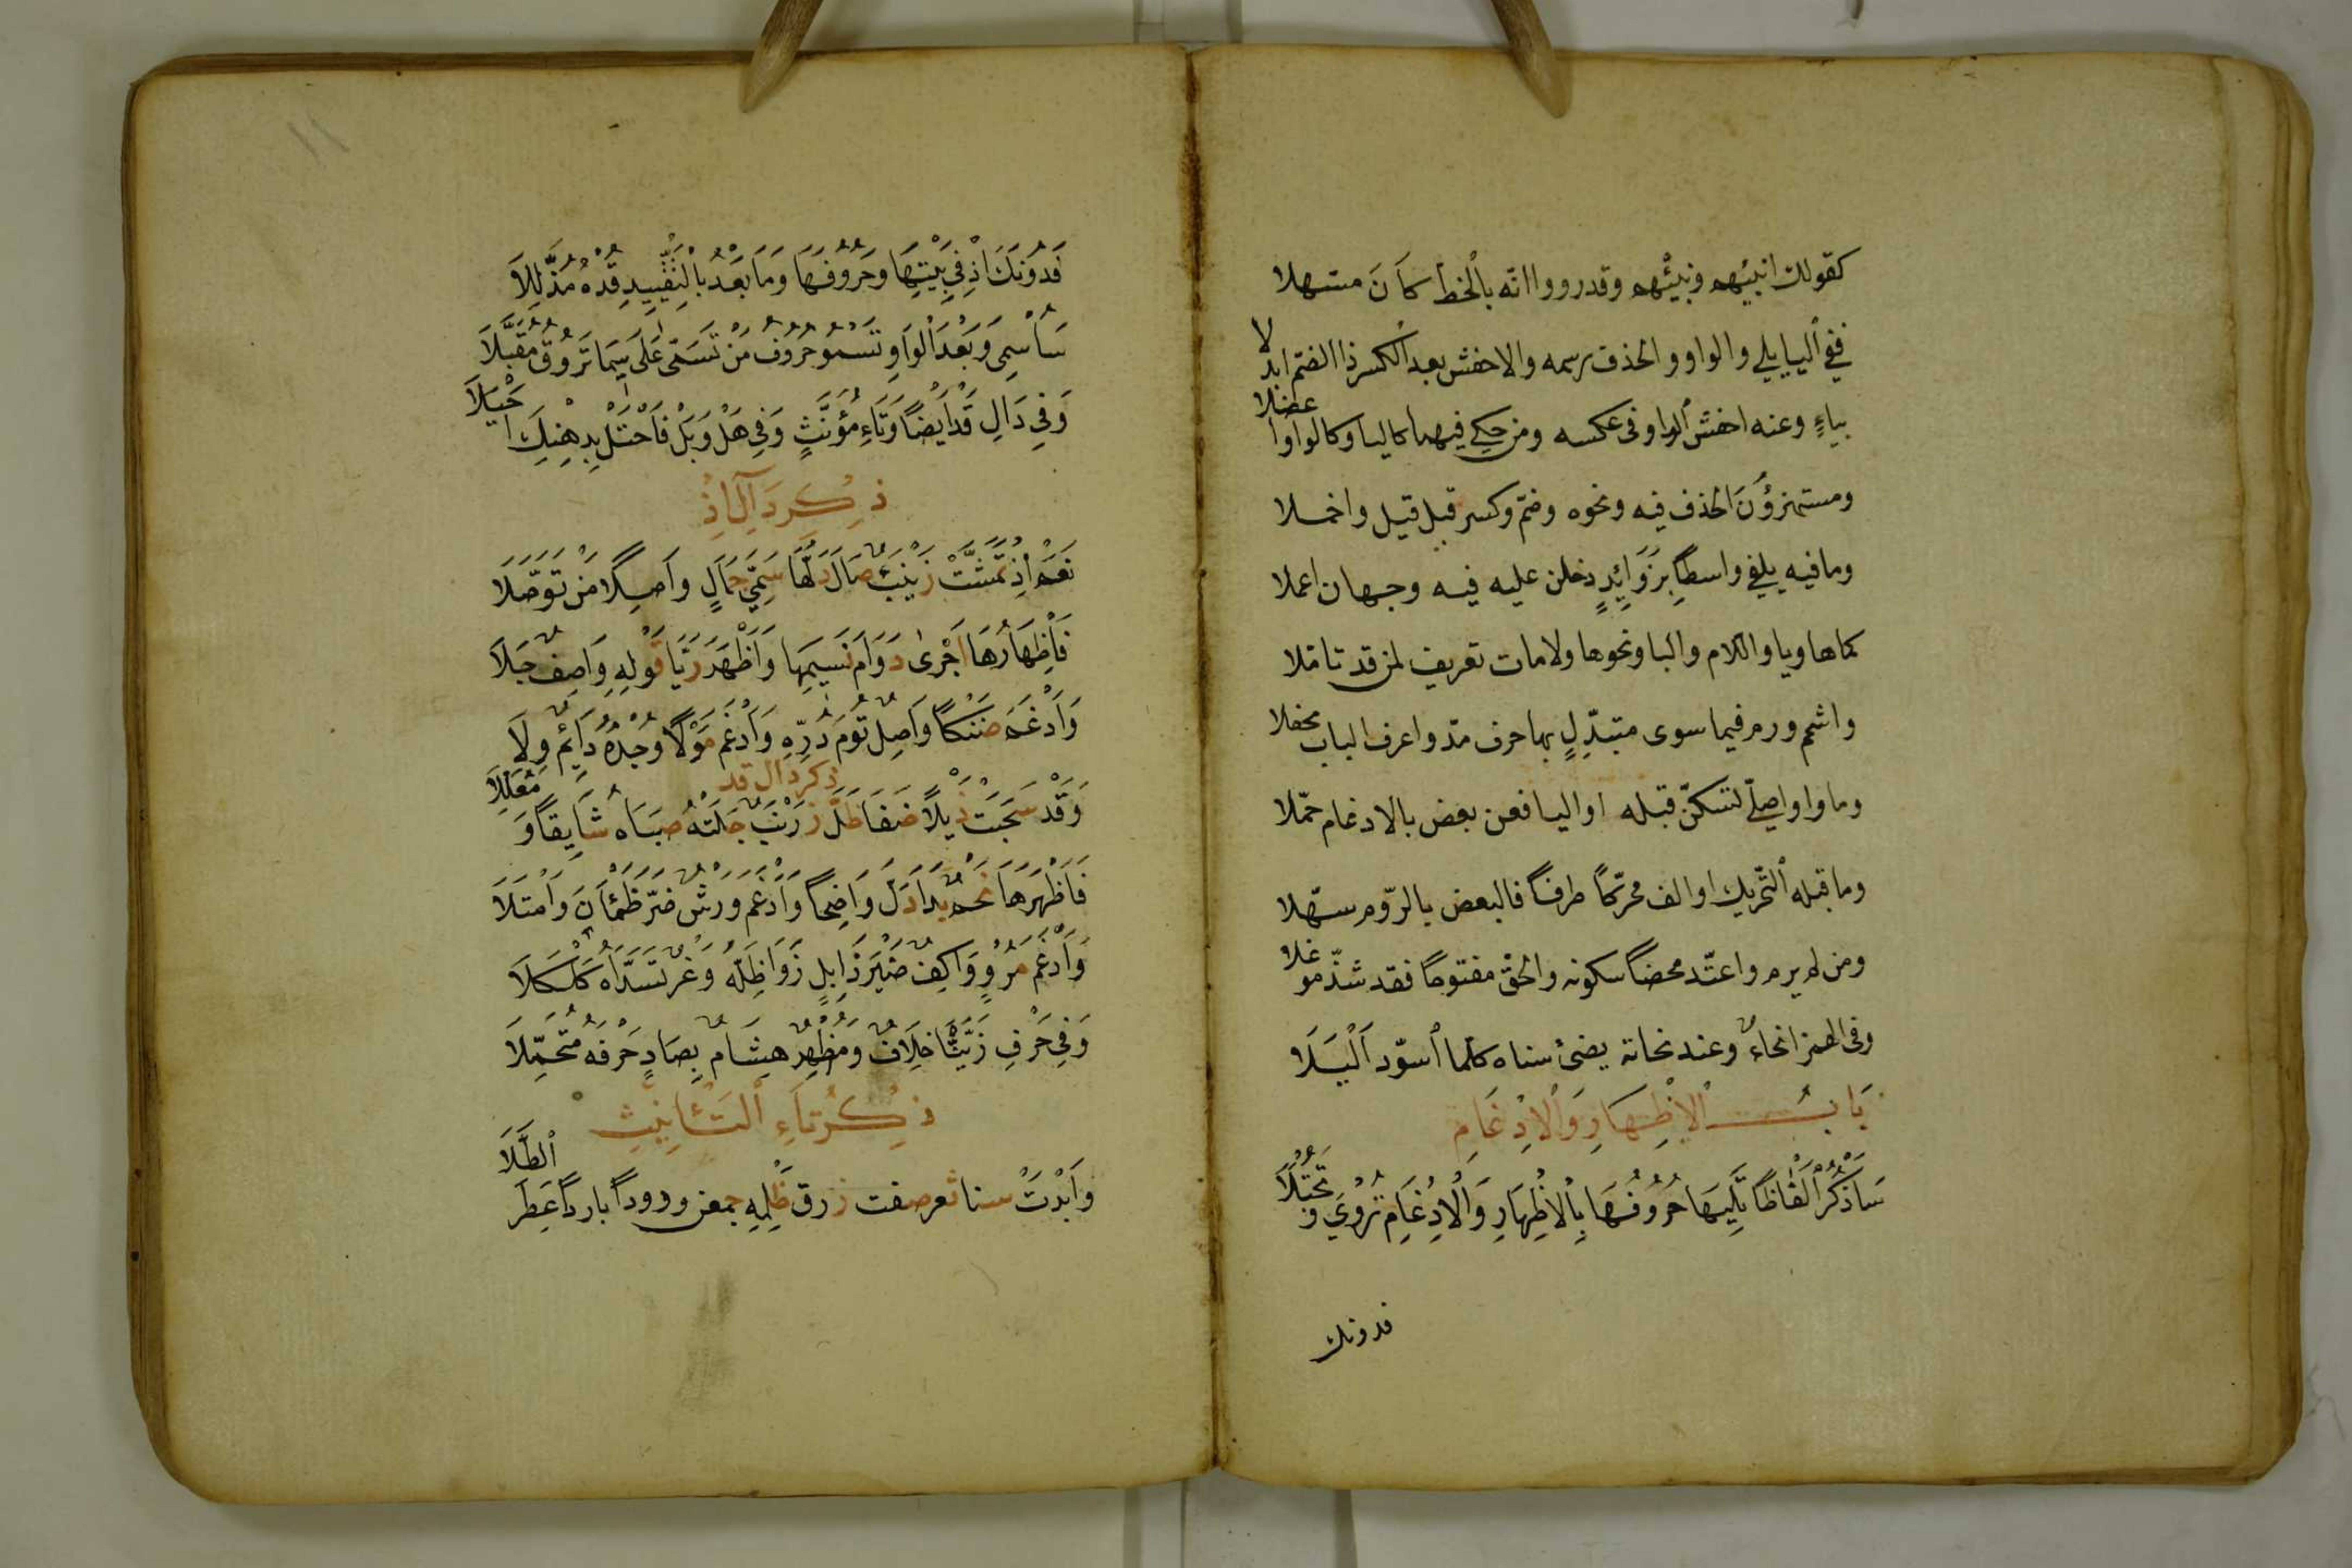 كقولك انبيهم ونبيئهم وقد رووا انه بالخط كان مسهلا
ففي اليا يلي والواو والحذف رسمه والاخفش بعد الكسر ذا الضم ابدلا
بياءٍ وعنه اخفش الواو في عكسه ومن حكى فيهما كاليا وكالواو اعضلا
ومستهزؤن الحذف فيه ونحوه وضم وكسر قبل قيل واخملا
وما فيه يلفى واسطا بزوائد دخلن عليه فيه وجهان اعملا
كماها ويا واللام والبا ونحوها ولامات تعريف لمن قد تاملا
واشمم ورم فيما سوى متبدّلٍ بها حرف مدّ واعرف الباب محفلا
وما واو اصلي تسكن قبله او اليا فعن بعض بالادغام حمّلا
وما قبله التحريك او الف محرّكا طرفا فالبعض بالرّوم سهّلا
ومن لم يرم واعتدّ محضا سكونه والحق مفتوحا فقد شذّ موغلا
وفي الهمز انحاءٌ وعند نحاته يضئ سناه كلما اسودّ اَلْيَلَا
بَابُ الاِظْهَارِ وَالاِدْغَامِ
سَاَذْكُرُ اَلْفَاظًا تَلِيهَا حُرُوفُهَا بِالاِظْهَارِ وَالْاِدْغَامِ تُرْوَى وَتُجْتَلَا
فدونك
فَدُونَكَ اِذْ فِي بَيْتِهَا وَحُرُوفُهَا وَمَا بَعْدُ بِالتَّقْيِيدِ قُدْهُ مُذَلَّلَا
سَاُسْمِي وَبَعْدَ الْوَاوِ تَسْمُو حُرُوفُ مَنْ تَسَمَّى عَلَى سِيمَا تَرُوقُ مُقَبَّلَا
وَفِي دَالِ قَدْ اَيْضًا وَتَاءِ مُؤَنَّثٍ وَفِي هَلْ وَبَلْ فَاحْتَلْ بِذِهْنِكَ اَحْيَلَا
ذِكْرُ ذَالِ اِذْ
نَعَمْ اِذْ تَمَشَّتْ زَيْنَبٌ صَالَ دَلُّهَا سَمِيَّ جَمَالٍ وَاصِلًا مَنْ تَوَصَّلَا
فَاِظْهَارُهَا اَجْرَى دَوَامَ نَسِيمِهَا وَاَظْهَرَ رَيَّا قَوْلِهِ وَاصِفٌ جَلَا
وَاَدْغَمَ ضَنْكًا وَاصِلٌ تُومَ دُرِّهِ وَاَدْغَمَ مَوْلًا وُجْدُهُ دَائِمٌ وِلَا
ذكر دال قد
وَقَدْ سَحَبَتْ ذَيْلًا ضَفَا ظَلَّ زَرْنَبٌ جَلَتْهُ صَبَاهُ شَايِقًا وَمُعَلِّلَا
فَاَظْهَرَهَا نَجْمٌ بَدَا دَلَّ وَاضِحًا وَاَدْغَمَ وَرْشٌ ضَرَّ ظَمْئَانَ وَامْتَلَا
وَاَدْغَمَ مُرْوٍ وَاكِفٌ ضَيْرَ ذَابِلٍ زَوَا ظِلَّهُ وَغْرٌ تَسَدَّاهُ كَلْكَلَا
وَفِي حَرْفِ زَيَّنَّا خِلَافٌ وَمُظْهِرٌ هِشَامٌ بِصَادٍ حَرْفَهُ مُتَحَمِّلَا
ذِكْرُ تَاءِ التَّأنِيثِ
وَاَبْدَتْ سنا ثغر صفت زرق ظَلْمِهِ جمعن ورودا باردا عَطِرَ الطَّلَا